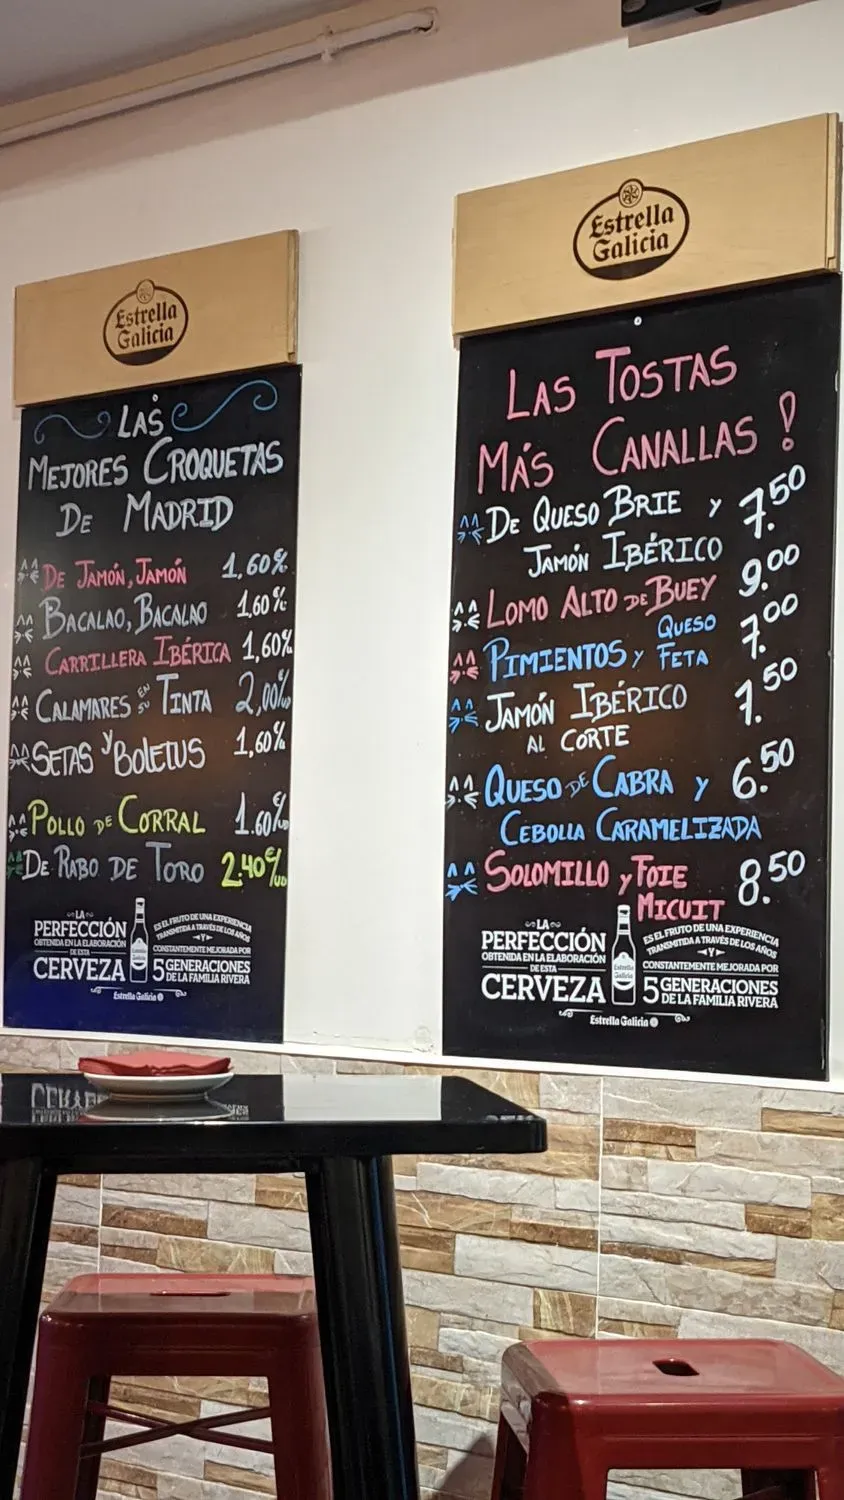 Estrella
Galicia
LAS
MEJORES CROQUETAS
DE MADRID
DE JAMÓN, JAMÓN 1,60€/
BACALAO, BACALAO 1,60€/
CARRILLERA IBÉRICA 1,60€/
CALAMARES EN SU TINTA 2,00€/UD
SETAS Y BOLETUS 1,60€/
POLLO DE CORRAL 1.60€/
DE RABO DE TORO 2.40€/UD
LA
PERFECCIÓN
OBTENIDA EN LA ELABORACIÓN
DE ESTA
CERVEZA
ES EL FRUTO DE UNA EXPERIENCIA
TRANSMITIDA A TRAVÉS DE LOS AÑOS
Y
CONSTANTEMENTE MEJORADA POR
5 GENERACIONES
DE LA FAMILIA RIVERA
Estrella Galicia
Estrella
Galicia
LAS TOSTAS
MÁS CANALLAS!
DE QUESO BRIE Y 7.50
JAMÓN IBÉRICO
LOMO ALTO DE BUEY 9.00
PIMIENTOS Y QUESO FETA 7.00
JAMÓN IBÉRICO 7.50
AL CORTE
QUESO DE CABRA Y 6.50
CEBOLLA CARAMELIZADA
SOLOMILLO Y FOIE 8.50
MICUIT
LA
PERFECCIÓN
OBTENIDA EN LA ELABORACIÓN
DE ESTA
CERVEZA
Estrella
Galicia
ES EL FRUTO DE UNA EXPERIENCIA
TRANSMITIDA A TRAVÉS DE LOS AÑOS
Y
CONSTANTEMENTE MEJORADA POR
5 GENERACIONES
DE LA FAMILIA RIVERA
Estrella Galicia